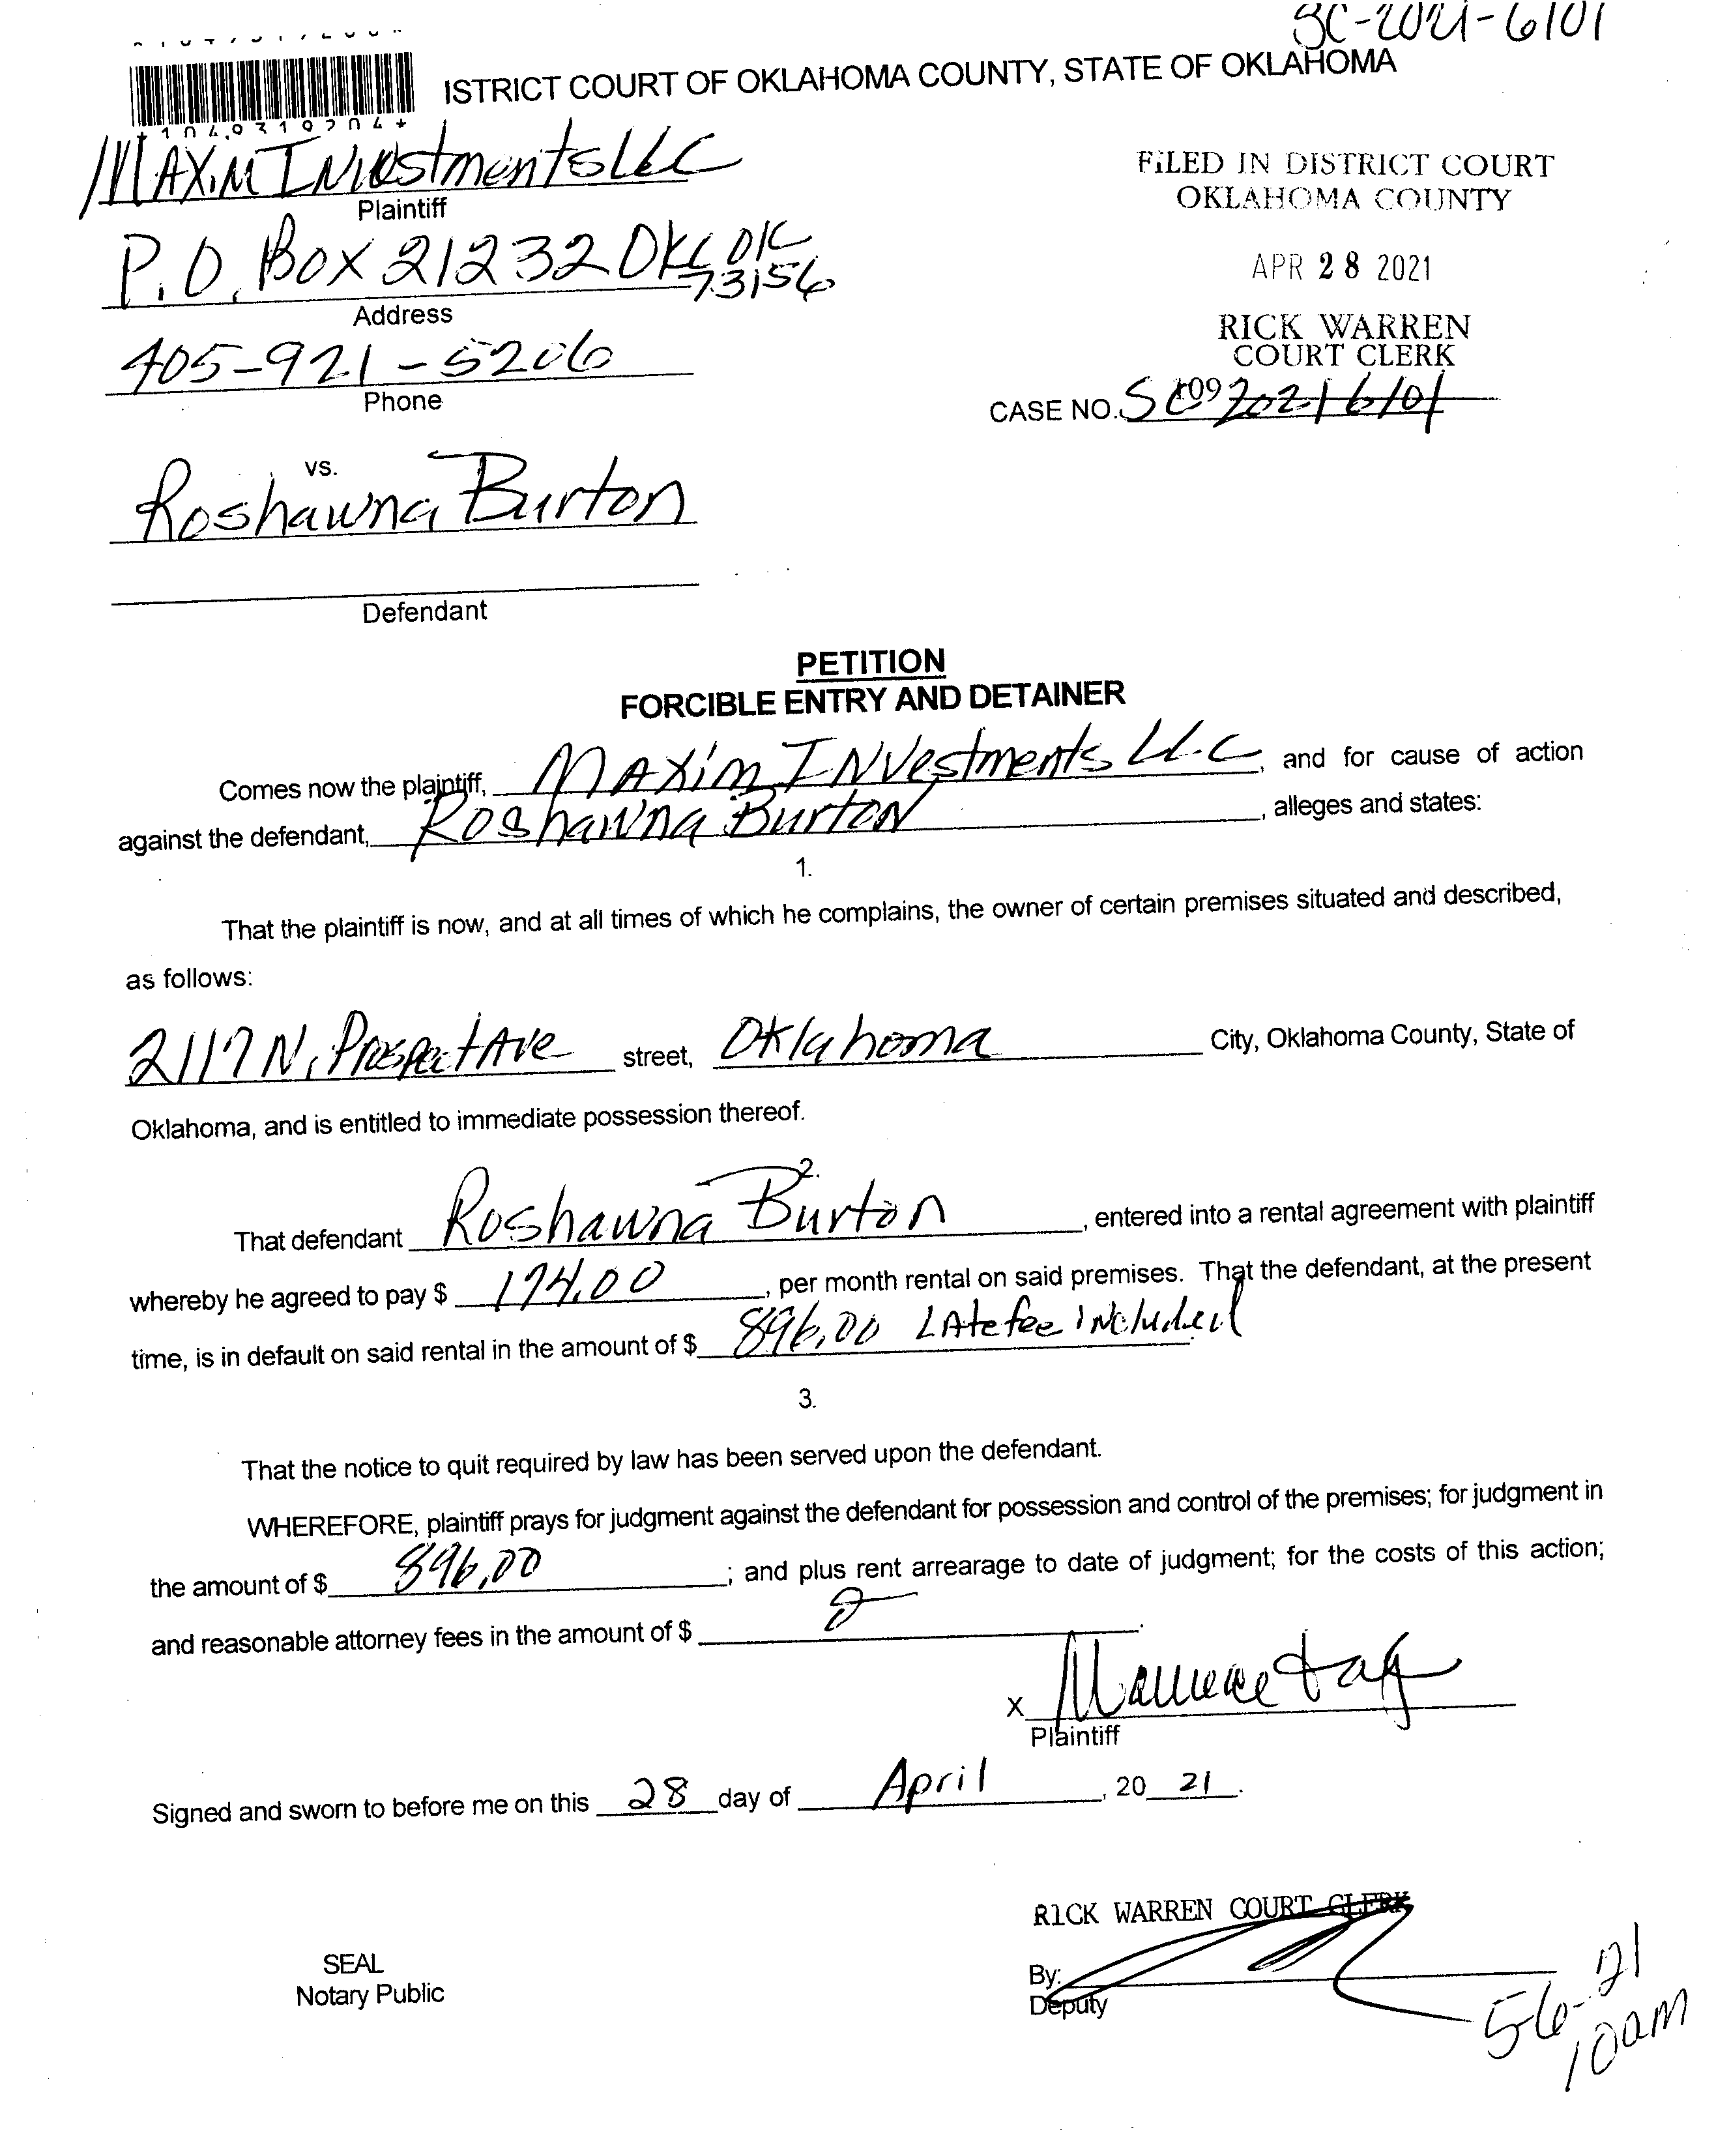 SC-2021-6101
ISTRICT COURT OF OKLAHOMA COUNTY, STATE OF OKLAHOMA
MAXIM INVestments LLC
Plaintiff
FILED IN DISTRICT COURT
OKLAHOMA COUNTY
P.O. Box 21232 OKC OK
73156
Address
APR 28 2021
405-921-5206
Phone
RICK WARREN
COURT CLERK
109
CASE NO. SC 2021 6101
vs.
Roshawna Burton
Defendant
PETITION
FORCIBLE ENTRY AND DETAINER
Comes now the plaintiff, MAXim INVestments LLC, and for cause of action
against the defendant, Roshawna Burton, alleges and states:
1.
That the plaintiff is now, and at all times of which he complains, the owner of certain premises situated and described,
as follows:
2117 N. Prospect Ave street, Oklahoma City, Oklahoma County, State of
Oklahoma, and is entitled to immediate possession thereof.
2.
That defendant Roshawna Burton, entered into a rental agreement with plaintiff
whereby he agreed to pay $ 174.00, per month rental on said premises. That the defendant, at the present
time, is in default on said rental in the amount of $ 896.00 LAte fee iNcluded
3.
That the notice to quit required by law has been served upon the defendant.
WHEREFORE, plaintiff prays for judgment against the defendant for possession and control of the premises; for judgment in
the amount of $ 896.00; and plus rent arrearage to date of judgment; for the costs of this action;
and reasonable attorney fees in the amount of $
X
Plaintiff
Signed and sworn to before me on this 28 day of April, 20 21.
RICK WARREN COURT CLERK
SEAL
Notary Public
By:
Deputy
5-6-21
10am